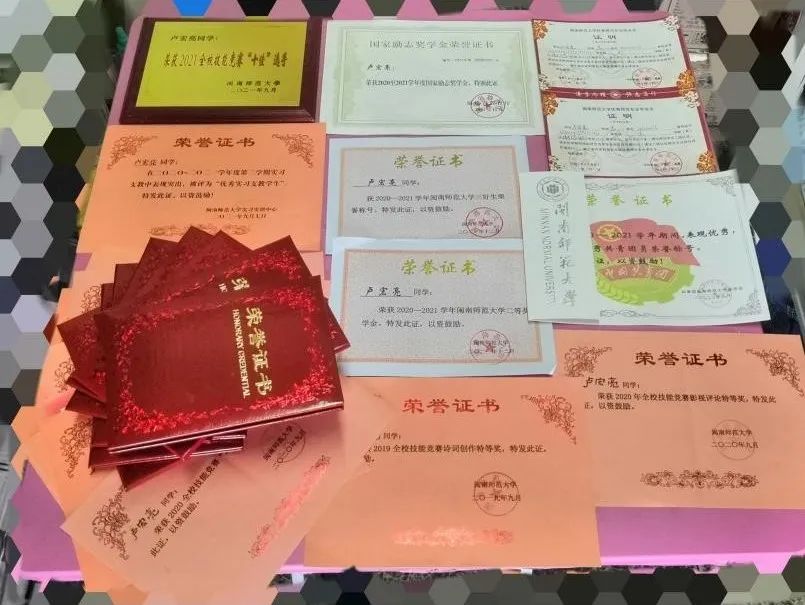 卢宏亮同学：
荣获2021全校技能竞赛“十佳”选手
闽南师范大学
二〇二一年九月
国家励志奖学金荣誉证书
卢宏亮
荣获2020至2021学年度国家励志奖学金，特颁此证。
证 明
证 明
荣誉证书
卢宏亮 同学：
学年度第二学期实习
支教中表现突出，被评为“优秀实习支教学生”。
特发此证，以资鼓励！
荣誉证书
卢宏亮 同学：
获2020—2021学年闽南师范大学三好生荣
誉称号，特发此证，以资鼓励。
闽南师范大学
MINNAN NORMAL UNIVERSITY
荣誉证书
2021学年期间，表现优秀，
秀共青团员荣誉称号。
证，以资鼓励！
中国共青团
荣誉证书
卢宏亮 同学：
荣获2020—2021学年闽南师范大学二等奖
学金，特发此证，以资鼓励。
荣誉证书
HONORARY CREDENTIAL
荣誉证书
同学：
2019全校技能竞赛诗词创作特等奖，特发此证，
闽南师范大学
二〇一九年九月
荣誉证书
卢宏亮 同学：
荣获2020年全校技能竞赛影视评论特等奖，特发此
证，以资鼓励。
闽南师范大学
二〇二〇年九月
卢宏亮 同学：
荣获2020全校技能竞
此证，以资鼓励。
闽南师范大学
二〇二〇年九月